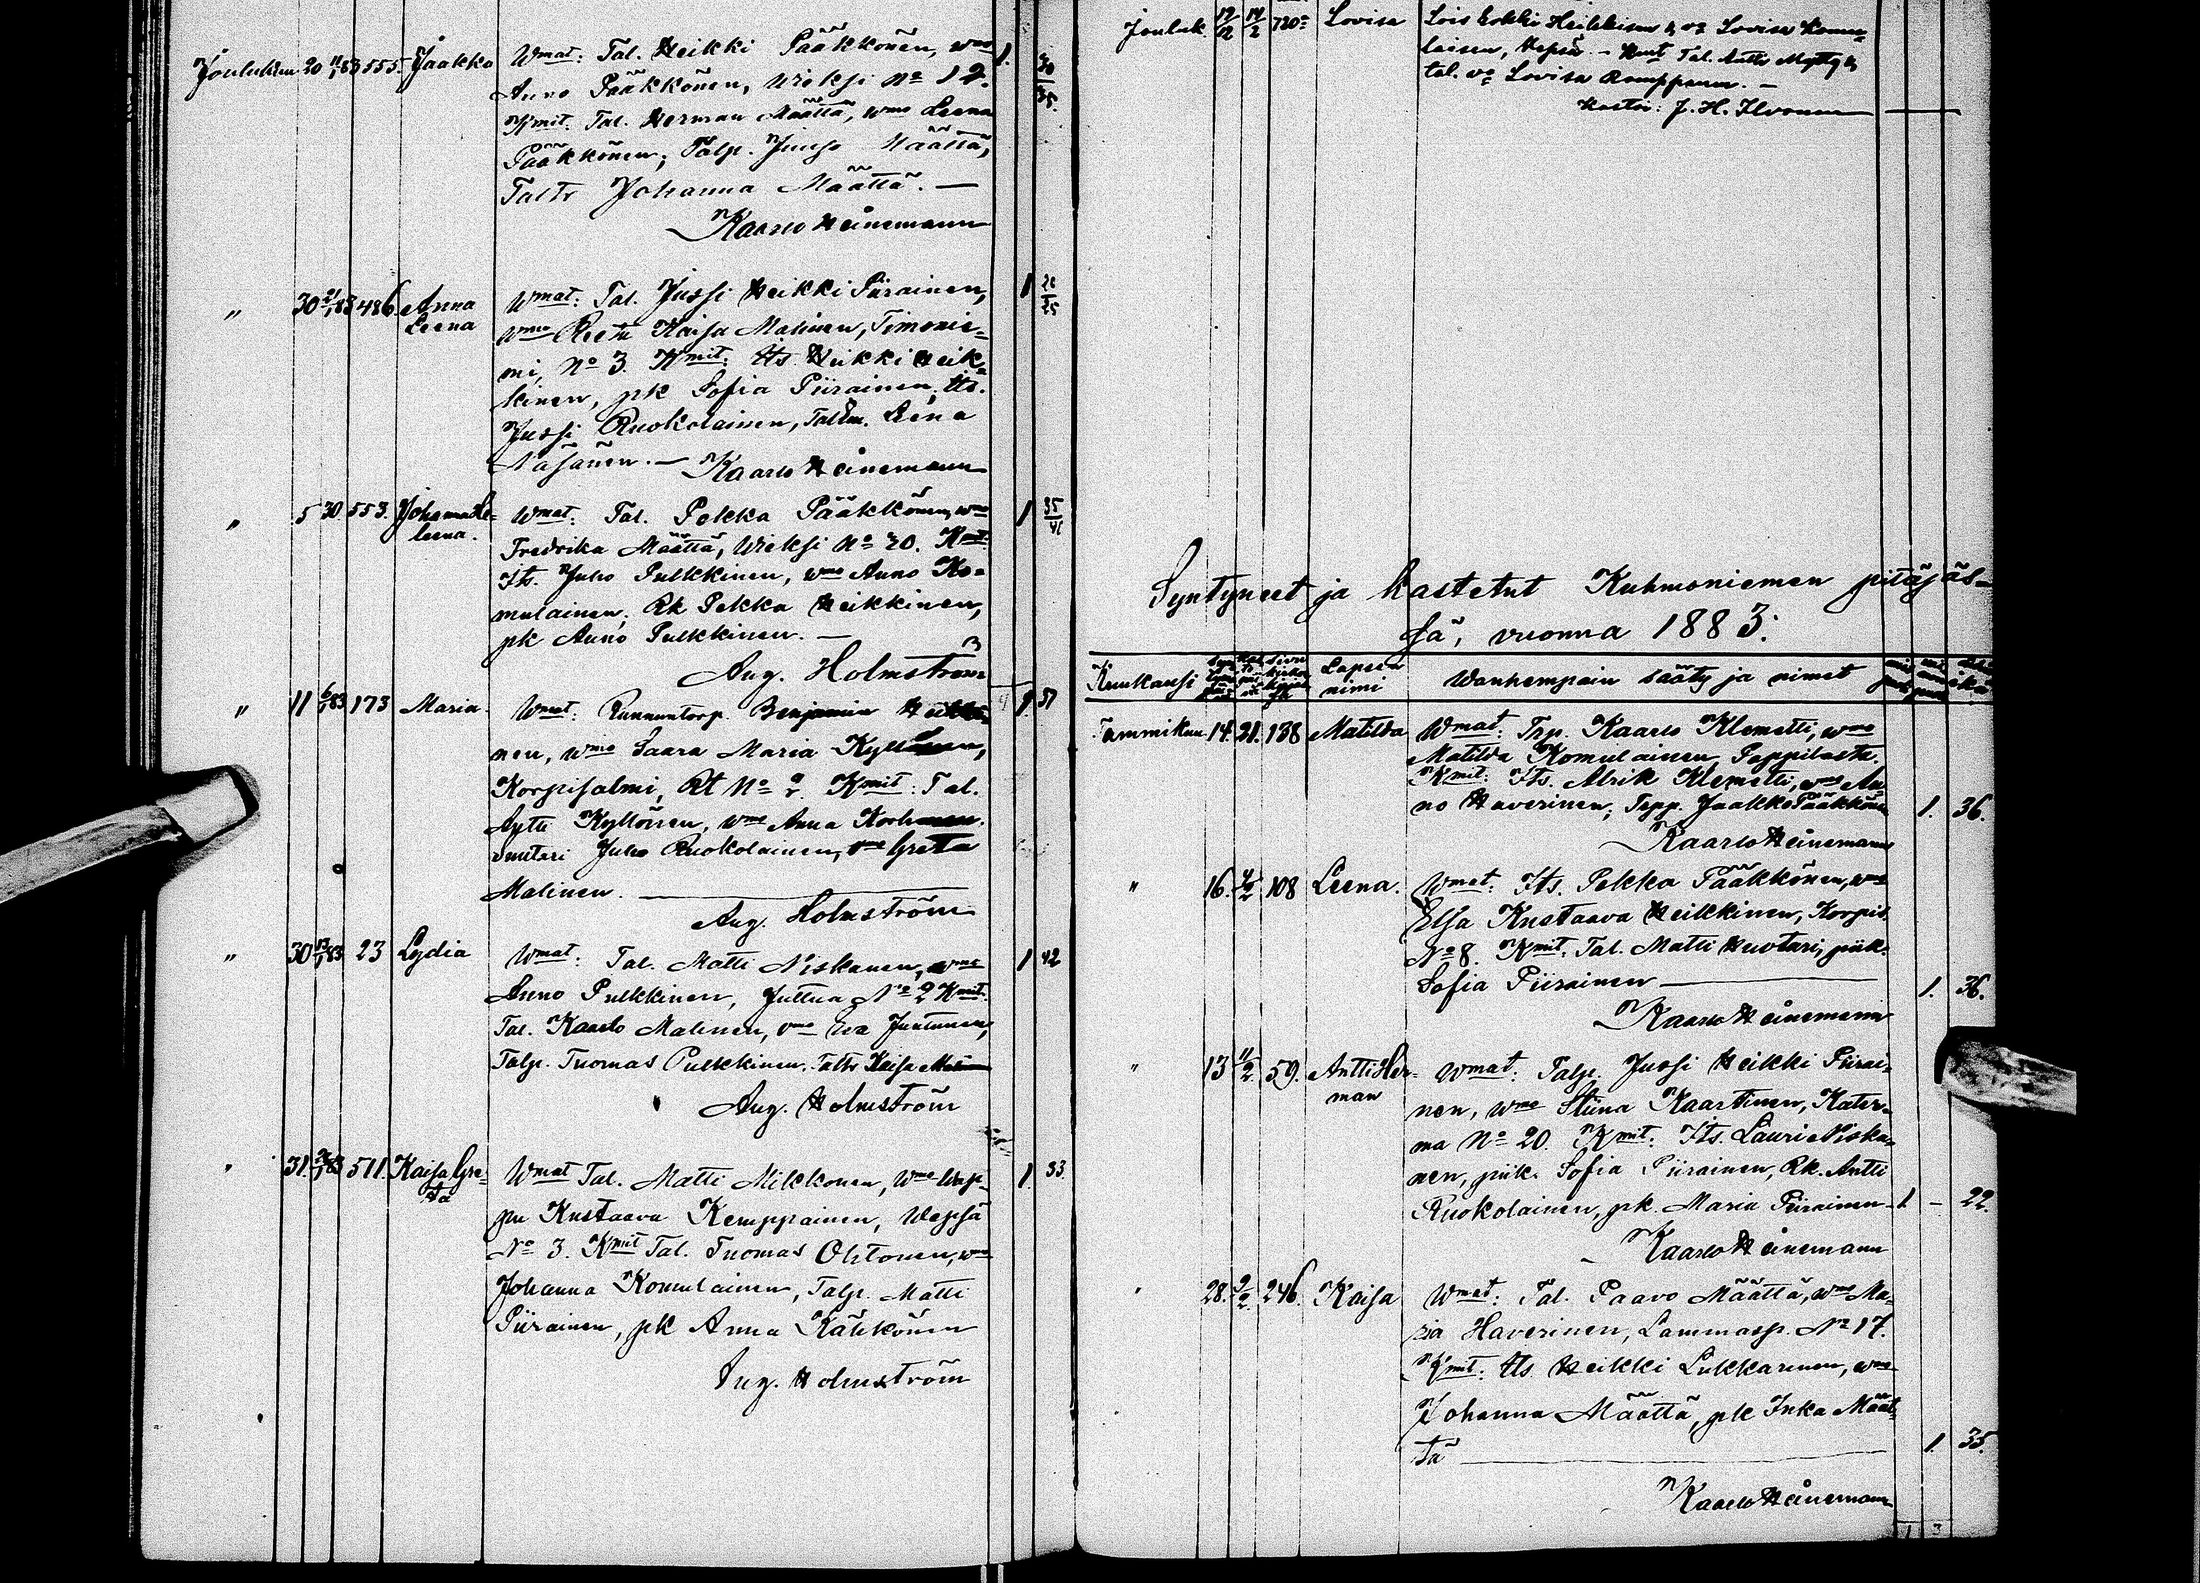 Jouluk.kuu 20 11/1 83 555. Jaakko Wmat: Tal. Heikki Pääkkönen, wmo 1.
Anno Pääkkönen, Wieksi No 12. 30/35.
Kmit. Tal. Herman Määttä, wmo Leena
Pääkkönen; Talp. Juujo Määttä,
Taltr Johanna Määttä. —
Kaarlo Heinemann
" 30 21/1 83 486. Anna Leena Wmat: Tal. Jussi Heikki Piirainen, 1
wmo Reeta Kaisa Malinen, Timonie-
mi, No 3. Kmit: Its. Heikki Heik-
kinen, pk Sofia Piirainen; Its.
Jussi Ruokolainen, Leena
Kaarlo Heinemann
" 5 30 553. Johanna Leena. Wmat: Tal. Pekka Pääkkönen, wmo 1 35/41
Fredrika Määttä, Wieksi No 20. Kmit:
Its. Juho Pulkkinen, wmo Anno Ko-
mulainen; Rk Pekka Heikkinen,
pk Anno Pulkkinen. —
Aug. Holmström
" 11 6/1 83 173 Maria. Wmat: Ruununtorp. Benjamin Heikki- 1 37
nen, wmo Saara Maria
Korpisalmi, Rt No Kmit: Tal.
Kyllönen, wmo Anna
Suutari Juho Ruokolainen, vmo Greta
Malinen. —
Aug. Holmström
" 30 13/1 83 23 Lydia Wmat: Tal. Matti Niskanen, wmo 1 42
Anno Pulkkinen, Juttua No 2 Kmit.
Tal. Kaarlo Malinen, vmo Juntunen,
Talp. Tuomas Pulkkinen. Taltr Kaisa
Aug. Holmström
" 31. 511. Kaisa Gre- Wmat Tal. Matti Mikkonen, Wmo Wap- 1. 33.
ta pu Kustaava Kemppainen, Wepsä
No 3. Kmit Tal. Tuomas Ohtonen, wmo
Johanna Komulainen, Talp. Matti
Piirainen, pk Anna Kähkönen
Aug. Holmström
Jouluk 12/12 14/2 720 Lovisa Lois Erkki Heikkisen & va Lovisa Komu-
laisen, Wepsä. — Kmit Tal. Antti Mytty &
tal. va Lovisa Kemppanen. —
Kastoi: J. H. Ilvonen
Syntyneet ja kastetut Kuhmoniemen pitäjäs-
sä, vuonna 1883:
Kuukausi Lapsen nimi Wanhempain sääty ja nimet
Tammikuu 14. 21. 138 Matilda Wmat: Trp. Kaarlo Klemetti, wmo
Matilda Komulainen,
Kmit: Its. Alrik Klemetti, wmo An-
no Haverinen; Jaakko Pääkkönen 1. 36.
Kaarlo Heinemann
" 16. 4/2 108 Leena. Wmat: Its. Pekka Pääkkönen, wmo
Elsa Kustaava Heikkinen, Korpis.
No 8. Kmit: Tal. Matti Huotari, piik.
Sofia Piirainen — 1. 36.
Kaarlo Heinemann
" 13 11/2. 59. Antti Her- Wmat: Talp. Jussi Heikki Piirai-
man nen, wmo Stiina Kaartinen, Kater-
ma No 20. Kmit: Its. Lauri Niska-
nen, piik. Sofia Piirainen, Rk. Antti
Ruokolainen, pk. Maria Piirainen - 1 - 22.
Kaarlo Heinemann
" 28. 9/2. 246. Kaisa Wmat: Tal. Paavo Määttä, wmo Ma-
ria Haverinen, Lammasp. No 17.
Kmit: Its Heikki Lukkarinen, wmo
Johanna Määttä, pk Inka Määt-
tä — 1. 35.
Kaarlo Heinemann
1 3